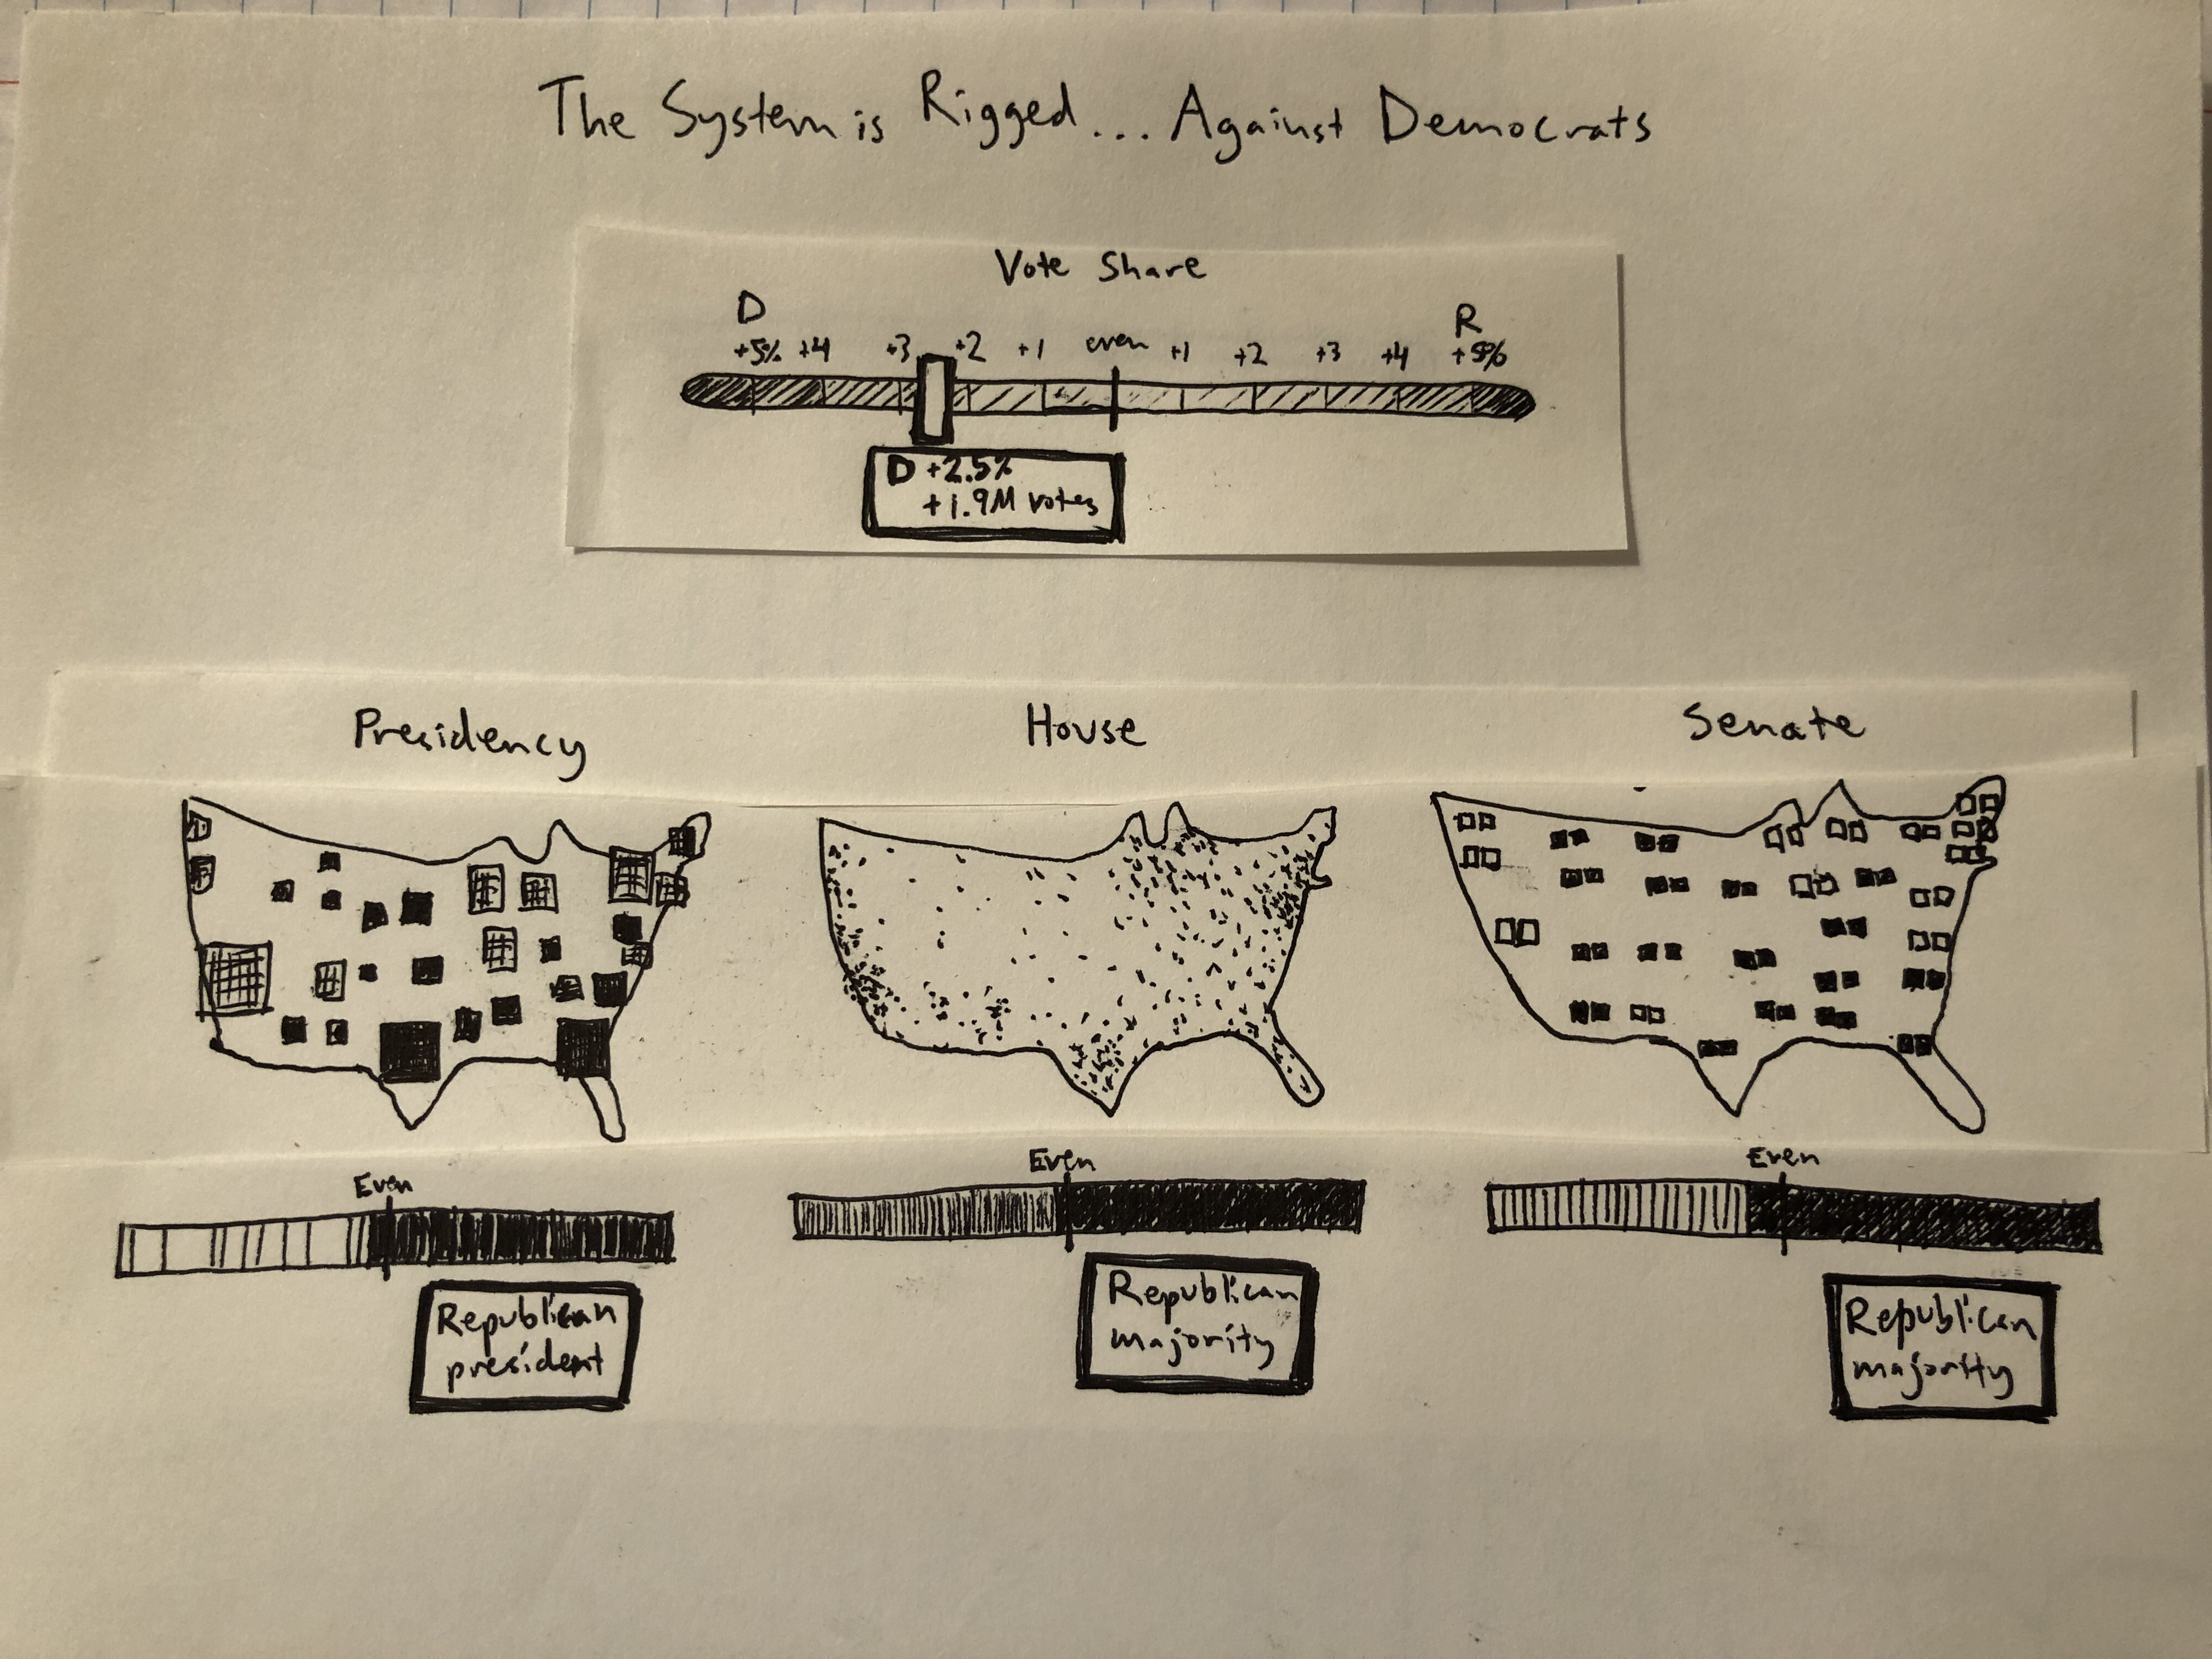 The System is Rigged... Against Democrats
Vote Share
D
R
+5% +4 +3 +2 +1 even +1 +2 +3 +4 +5%
D +2.5%
+1.9M votes
Presidency
House
Senate
Even
Even
Even
Republican
president
Republican
majority
Republican
majority